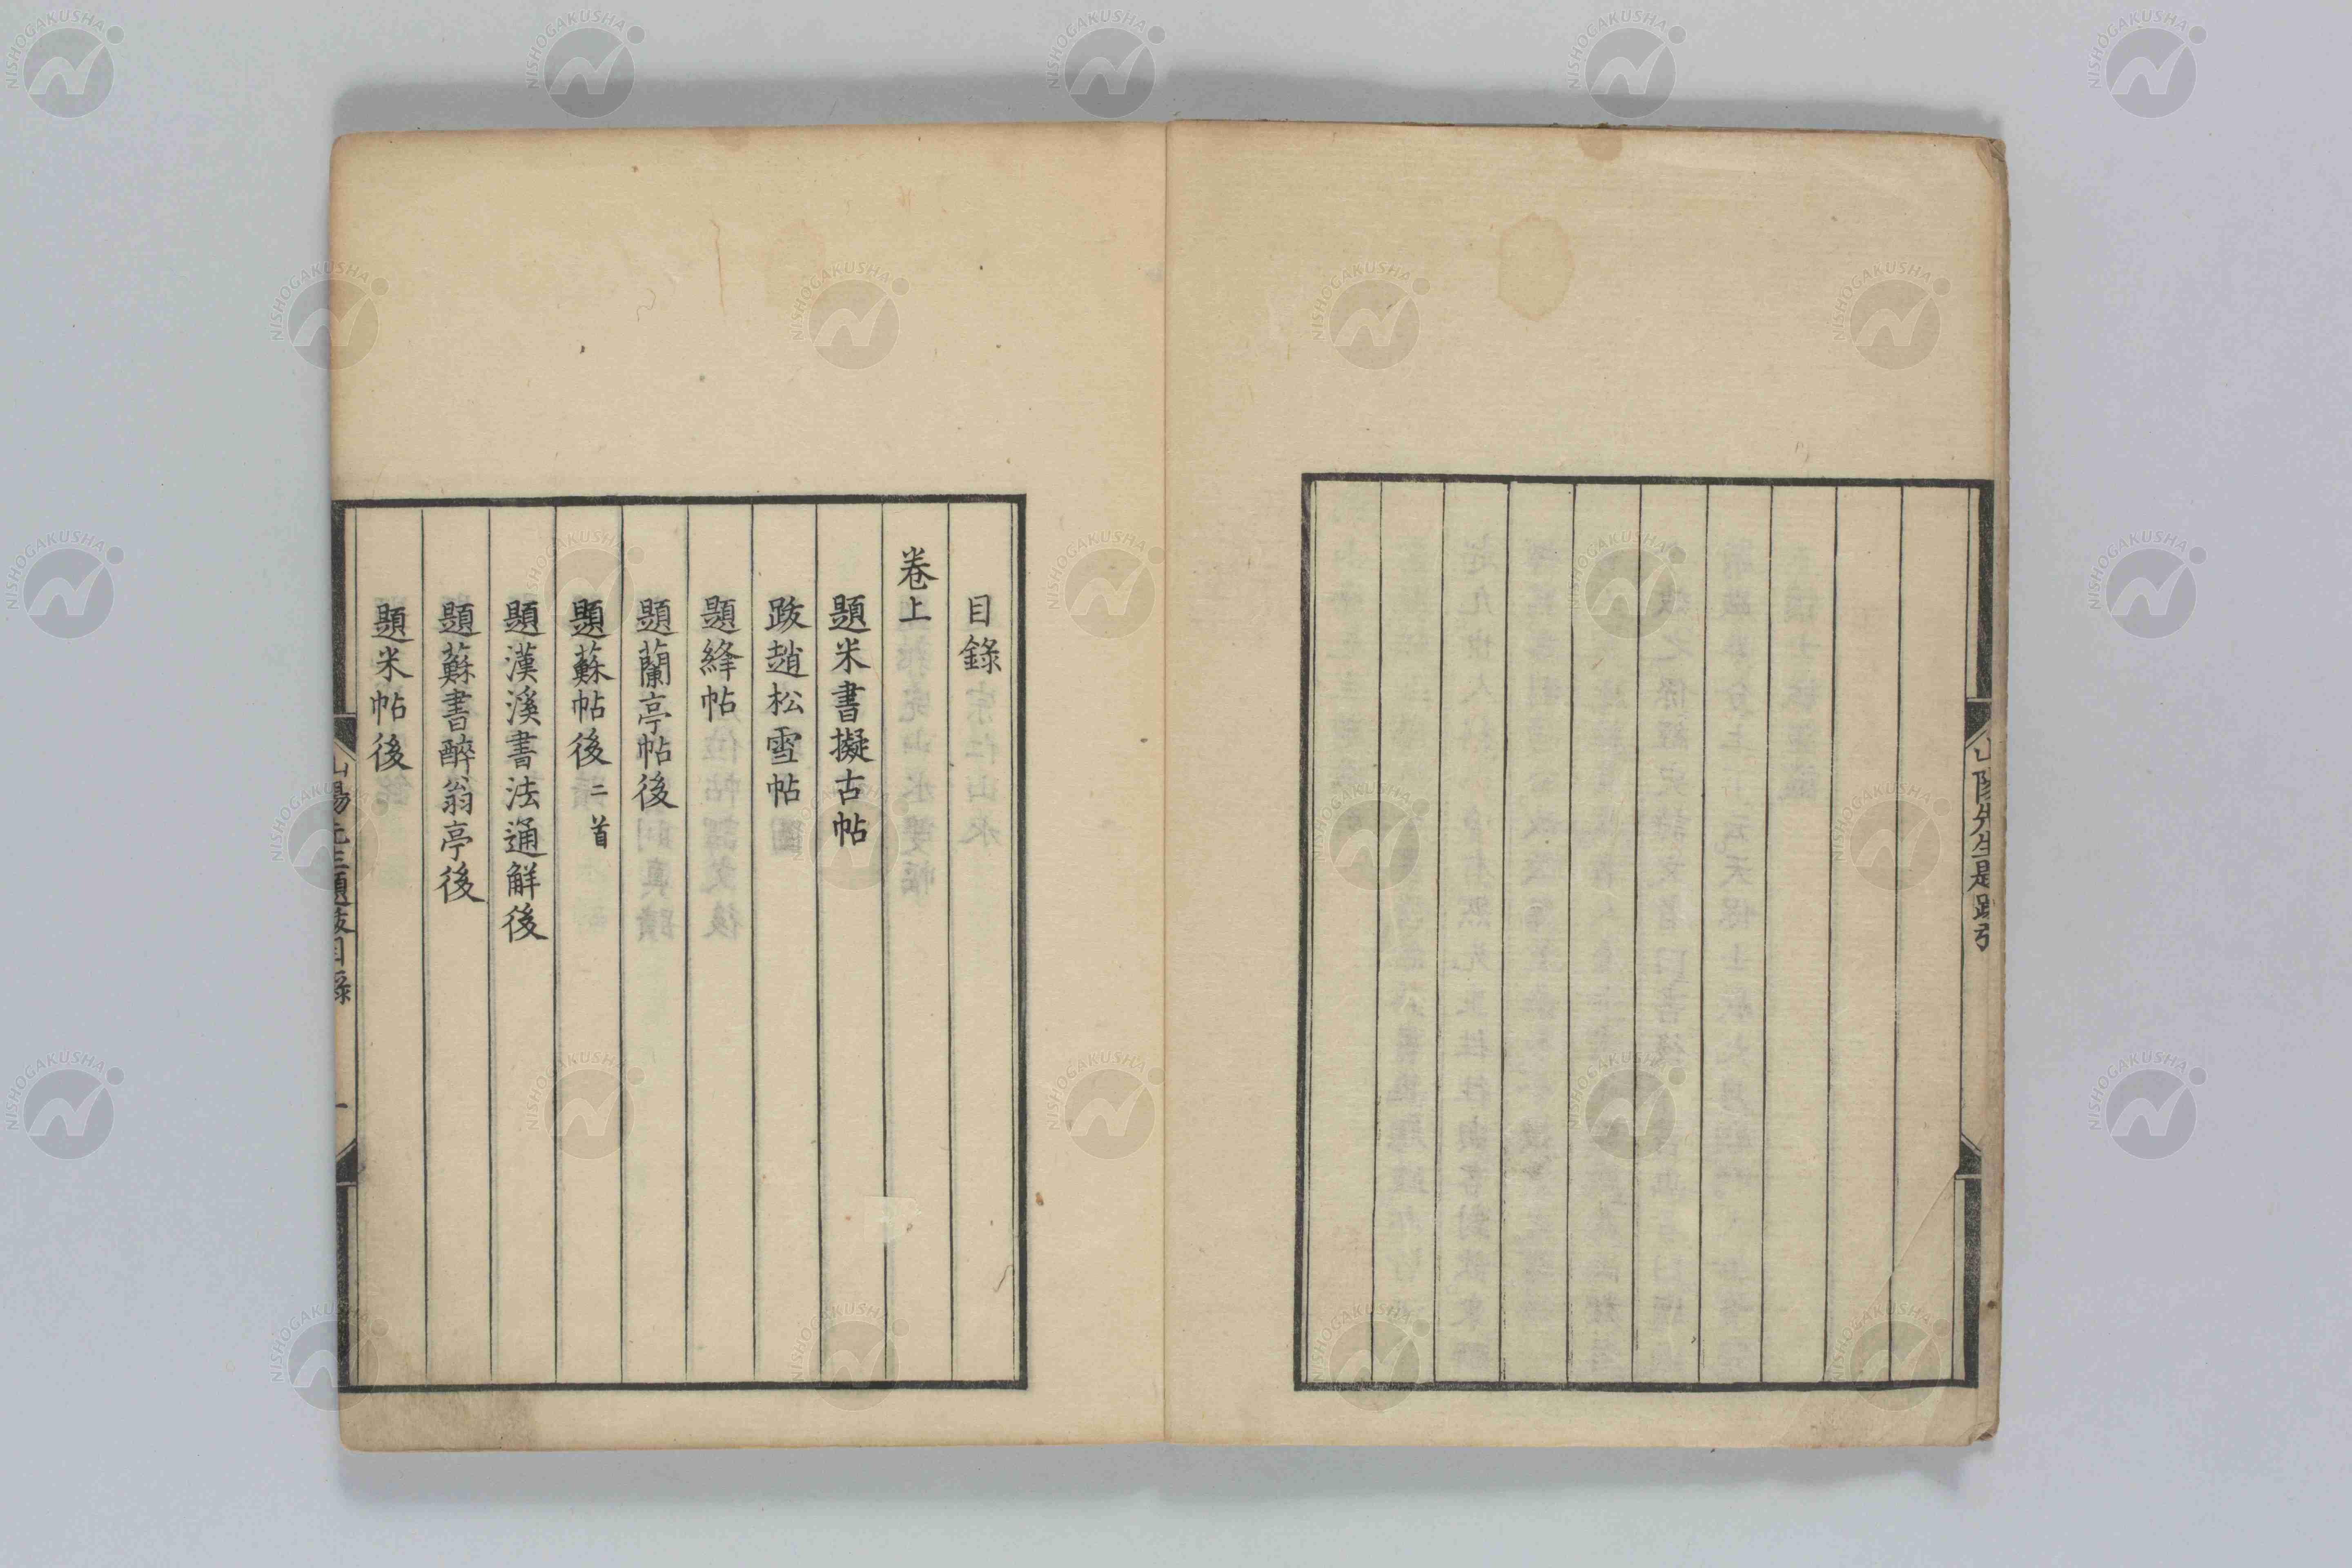 山陽先生題跋引
目錄
卷上
題米書擬古帖
跋趙松雪帖
題絳帖
題蘭亭帖後
題蘇帖後二首
題漢溪書法通觧後
題蘇書醉翁亭後
題米帖後
山陽先生題跋目錄
一
NISHOGAKUSHA